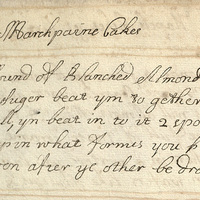 Marchpaine Cakes
ound of Blanched Almond
suger beat ym to gether
ll, yn beat in to it 2 spo
pin what formes you p
on after ye other be dro